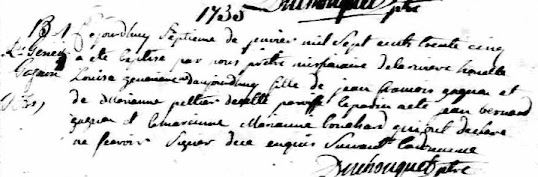 1735 Dumouquet ptre
B 1 aujourdhuy Septieme de janvier mil Sept cents trente cinq
Lse Genev a ete baptise par nous pretre missionaire de la riviere
Gagnon Louise genevieve daujourdhuy fille de jean francois gagnan et
de Marianne pelletier de cette paroisse le parain a ete jean bernard
gagnan et la maraine Marianne bouchard qui ont declare
ne scavoir Signer de ce enquis Suivant lordonnance
ptre